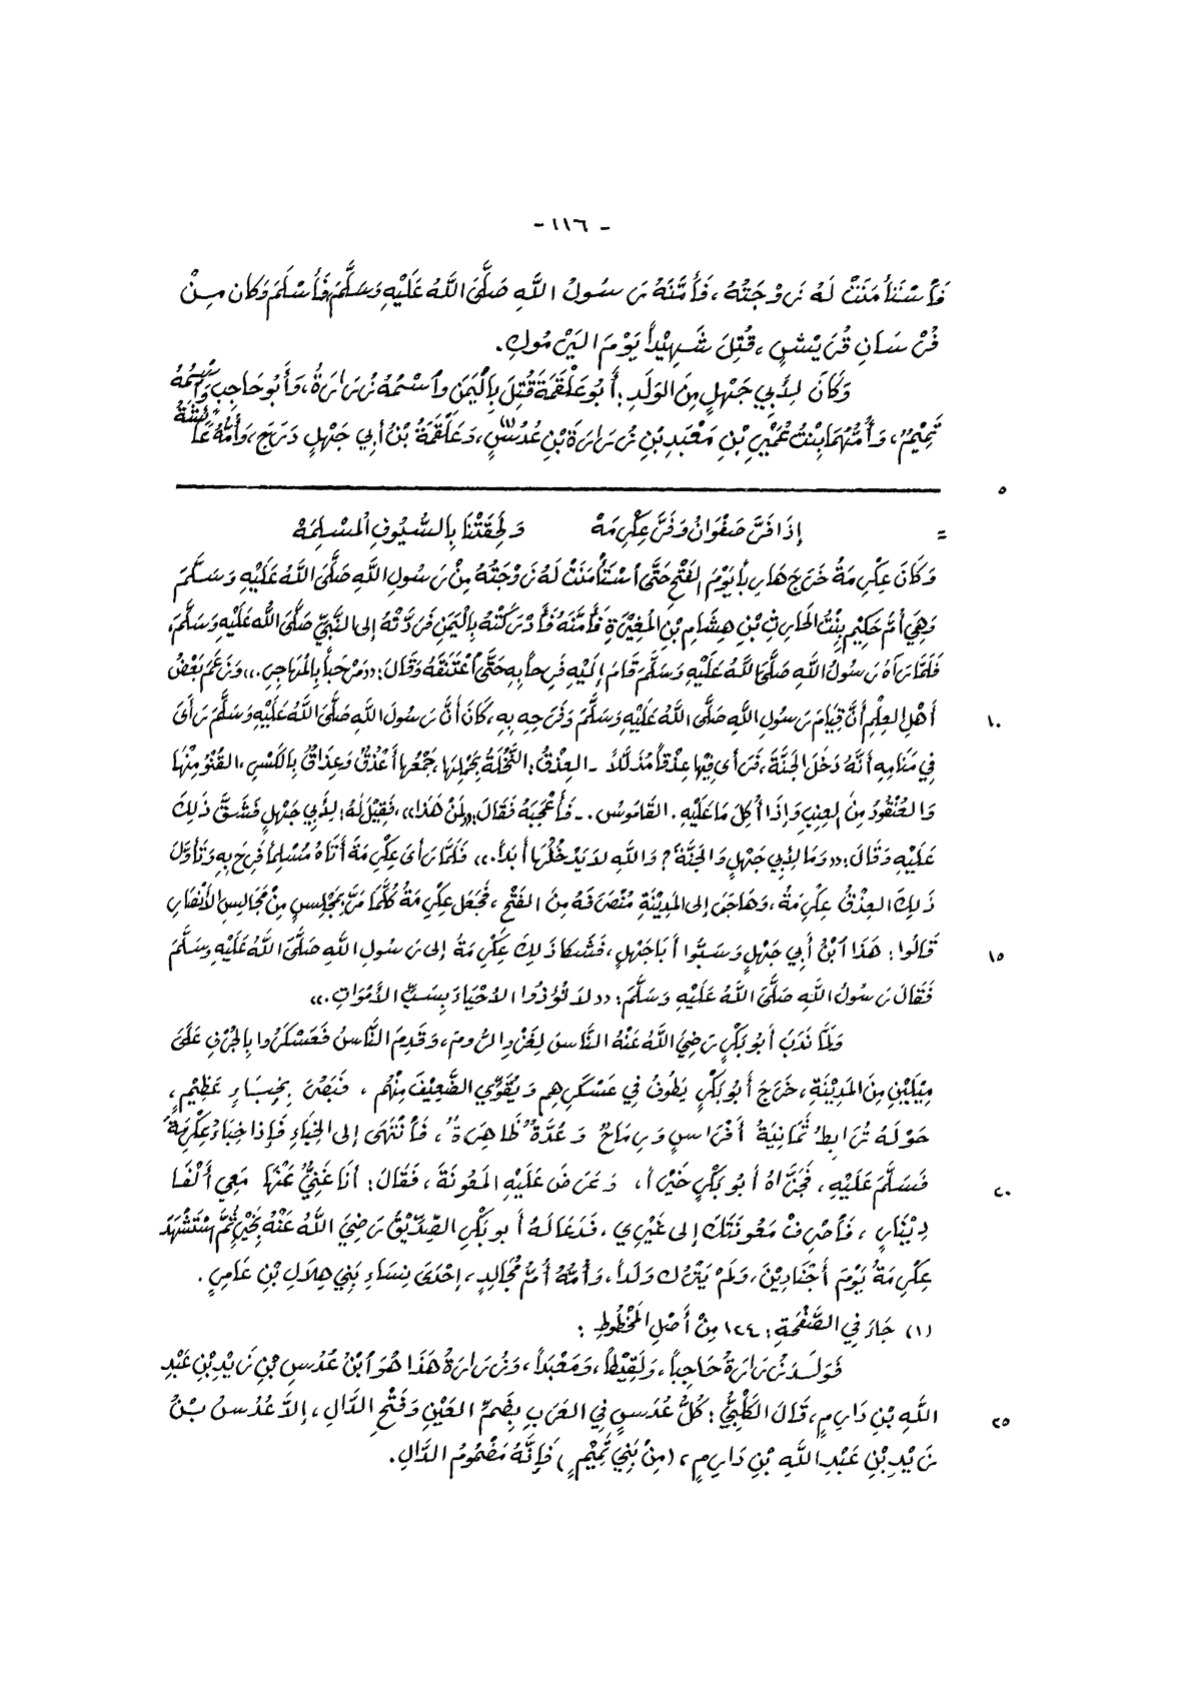 - ١١٦ -
فَٱسْتَأْمَنَتْ لَهُ زَوْجَتُهُ، فَأَمَّنَهُ رَسُولُ اللَّهِ صَلَّى اللَّهُ عَلَيْهِ وَسَلَّمَ فَأَسْلَمَ وَكَانَ مِنْ
فُرْسَانِ قُرَيْشٍ، قُتِلَ شَهِيْداً يَوْمَ اليَرْمُوكِ.
وَكَانَ لِأَبِي جَهْلٍ مِنَ الوَلَدِ: أَبُو عَلْقَمَةَ قُتِلَ بِاليَمَنِ وَٱسْمُهُ زُرَارَةُ، وَأَبُو حَاجِبٍ وَٱسْمُهُ
تَمِيْمٌ، وَأُمُّهُمَا بِنْتُ عُمَيْرِ بْنِ مَعْبَدِ بْنِ زُرَارَةَ بْنِ عُدُسٍ(١)، وَعَلْقَمَةُ بْنُ أَبِي جَهْلٍ دَرَجَ، وَأُمُّهُ عَائِشَةُ
٥
= إِذَا فَرَّ صَفْوَانُ وَفَرَّ عِكْرِمَهْ وَلَحِقَتْنَا بِالسُّيُوفِ المُسْلِمَهْ
وَكَانَ عِكْرِمَةُ خَرَجَ هَارِباً يَوْمَ الفَتْحِ حَتَّى ٱسْتَأْمَنَتْ لَهُ زَوْجَتُهُ مِنْ رَسُولِ اللَّهِ صَلَّى اللَّهُ عَلَيْهِ وَسَلَّمَ
وَهِيَ أُمُّ حَكِيْمٍ بِنْتُ الحَارِثِ بْنِ هِشَامِ بْنِ المُغِيْرَةِ فَأَمَّنَهُ فَأَدْرَكَتْهُ بِاليَمَنِ فَرَدَّتْهُ إلى النَّبِيِّ صَلَّى اللَّه عَلَيْهِ وَسَلَّمَ،
فَلَمَّا رَآهُ رَسُولُ اللَّهِ صَلَّى اللَّهُ عَلَيْهِ وَسَلَّمَ قَامَ إِلَيْهِ فَرِحاً بِهِ حَتَّى ٱعْتَنَقَهُ وَقَالَ: «مَرْحَباً بِالمُهَاجِرِ.»، وَزَعَمَ بَعْضُ
أَهْلِ العِلْمِ أَنَّ قِيَامَ رَسُولِ اللَّهِ صَلَّى اللَّهُ عَلَيْهِ وَسَلَّمَ وَفَرَحِهِ بِهِ، كَانَ أَنَّ رَسُولَ اللَّهِ صَلَّى اللَّهُ عَلَيْهِ وَسَلَّمَ رَأَى
١٠
فِي مَنَامِهِ أَنَّهُ دَخَلَ الجَنَّةَ، فَرَأَى فِيْهَا عِذْقاً مُذَلَّلاً - العِذْقُ: النَّخْلَةُ بِحَمْلِهَا، جَمْعُهَا أَعْذُقٌ وَعِذَاقٌ بِالكَسْرِ، القِنْوُ مِنْهَا
وَالعُنْقُودُ مِنَ العِنَبِ وَإِذَا أُكِلَ مَا عَلَيْهِ. القَامُوسُ. - فَأَعْجَبَهُ فَقَالَ: «لِمَنْ هَذَا»، فَقِيْلَ لَهُ: لِأَبِي جَهْلٍ فَشَقَّ ذَلِكَ
عَلَيْهِ وَقَالَ: «وَمَا لِأَبِي جَهْلٍ وَالجَنَّةَ؟ وَاللَّهِ لاَ يَدْخُلُهَا أَبَداً.» فَلَمَّا رَأَى عِكْرِمَةَ أَتَاهُ مُسْلِماً فَرِحَ بِهِ وَتَأَوَّلَ
ذَلِكَ العِذْقَ عِكْرِمَةُ، وَهَاجَرَ إلى المَدِيْنَةِ مُنْصَرَفَهُ مِنَ الفَتْحِ، فَجَعَلَ عِكْرِمَةُ كُلَّمَا مَرَّ بِمَجْلِسٍ مِنْ مَجَالِسِ الأَنْصَارِ
قَالُوا: هَذَا ٱبْنُ أَبِي جَهْلٍ وَسَبُّوا أَبَا جَهْلٍ، فَشَكَا ذَلِكَ عِكْرِمَةُ إلى رَسُولِ اللَّهِ صَلَّى اللَّهُ عَلَيْهِ وَسَلَّمَ
١٥
فَقَالَ رَسُولُ اللَّهِ صَلَّى اللَّهُ عَلَيْهِ وَسَلَّمَ: «لاَ تُؤْذُوا الأَحْيَاءَ بِسَبِّ الأَمْوَاتِ.»
وَلَمَّا نَدَبَ أَبُو بَكْرٍ رَضِيَ اللَّهُ عَنْهُ النَّاسَ لِغَزْوِ الرُّومِ، وَقَدِمَ النَّاسُ فَعَسْكَرُوا بِالجُرْفِ عَلَى
مِيْلَيْنِ مِنَ المَدِيْنَةِ، خَرَجَ أَبُو بَكْرٍ يَطُوفُ فِي عَسْكَرِهِم وَيُقَوِّي الضَّعِيْفَ مِنْهُم، فَبَصُرَ بِخِبَاءٍ عَظِيْمٍ،
حَوْلَهُ تُرَابِطُ ثَمَانِيَةُ أَفْرَاسٍ وَرِمَاحٌ وَعُدَّةٌ ظَاهِرَةٌ، فَٱنْتَهَى إلى الخِبَاءِ فَإِذَا خِبَاءُ عِكْرِمَةَ
فَسَلَّمَ عَلَيْهِ، فَجَزَّاهُ أَبُو بَكْرٍ خَيْراً، وَعَرَضَ عَلَيْهِ المَعُونَةَ، فَقَالَ: أَنَا غَنِيٌّ عَنْهَا مَعِي أَلْفَا
٢٠
دِيْنَارٍ، فَٱصْرِفْ مَعُونَتَكَ إلى غَيْرِي، فَدَعَا لَهُ أَبو بَكْرِ الصِّدِّيْقُ رَضِيَ اللَّهُ عَنْهُ بِخَيْرٍ ثُمَّ ٱسْتُشْهِدَ
عِكْرِمَةُ يَوْمَ أَجْنَادِيْنَ، وَلَمْ يَتْرُك وَلَداً، وَأُمُّهُ أُمُّ مُجَالِدٍ، إِحْدَى نِسَاءِ بَنِي هِلاَلِ بْنِ عَامِرٍ.
(١) جَاءَ فِي الصَّفْحَةِ: ١٢٤ مِنْ أَصْلِ المَخْطُوطِ:
فَوَلَدَ زُرَارَةُ حَاجِباً، وَلَقِيْطاً، وَمَعْبَداً، وَزُرَارَةُ هَذَا هُوَ ٱبْنُ عُدُسِ بْنِ زَيْدِ بْنِ عَبْدِ
اللَّهِ بْنِ دَارِمٍ، قَالَ الكَلْبِيُّ: كُلُّ عُدَسٍ فِي العَرَبِ بِضَمِّ العَيْنِ وَفَتْحِ الدَّالِ، إِلاَّ عُدُسُ بْنُ
٢٥
زَيْدِ بْنِ عَبْدِ اللَّهِ بْنِ دَارِمٍ، (مِنْ بَنِي تَمِيْمٍ) فَإِنَّهُ مَضْمُومُ الدَّالِ.